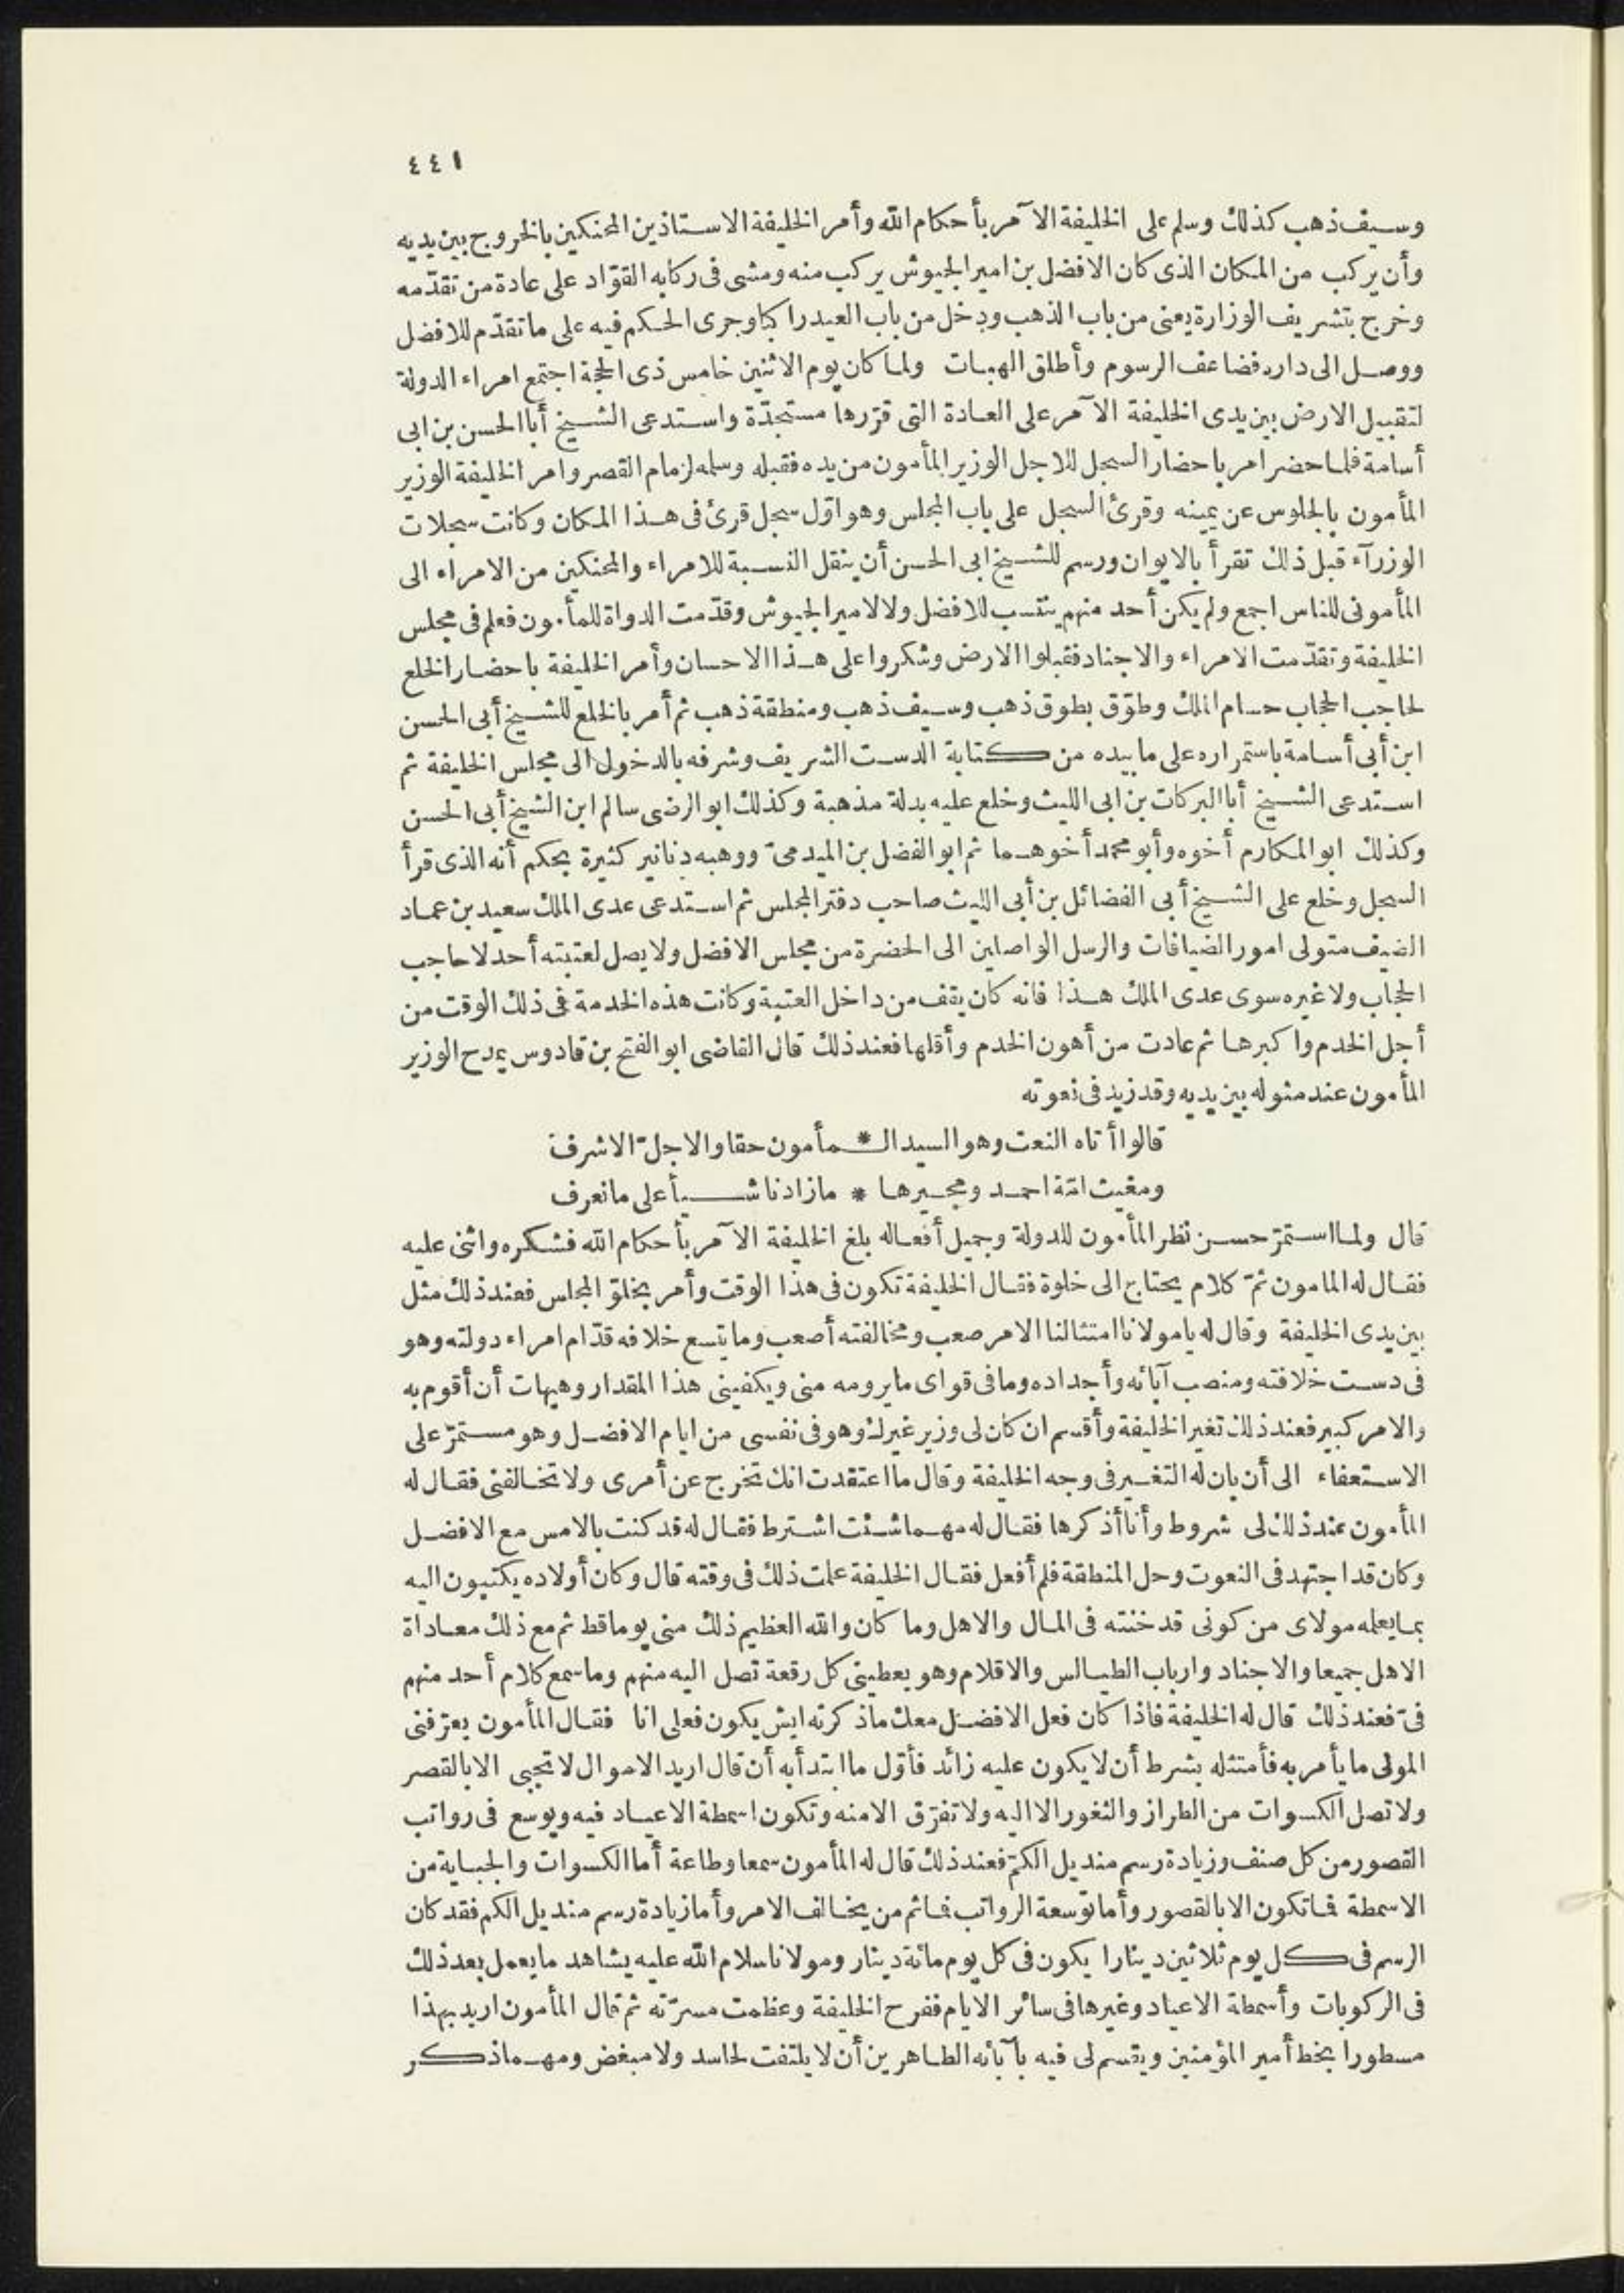 ٤٤١
وسيف ذهب كذلك وسلم على الخليفة الآمر بأحكام الله وأمر الخليفة الاستاذين المحنكين بالخروج بين يديه
وأن يركب من المكان الذى كان الافضل بن امير الجيوش يركب منه ومشى فى ركابه القوّاد على عادة من تقدّمه
وخرج بتشريف الوزارة يعنى من باب الذهب ودخل من باب العيد راكبا وجرى الحكم فيه على ما تقدّم للافضل
ووصل الى داره فضاعف الرسوم وأطلق الهبات ولما كان يوم الاثنين خامس ذى الحجة اجتمع امراء الدولة
لتقبيل الارض بين يدى الخليفة الآمر على العادة التى قرّرها مستجدّة واستدعى الشيخ أبا الحسن بن ابى
أسامة فلما حضر امر باحضار السجل للاجل الوزير المأمون من يده فقبله وسلمه لزمام القصر وامر الخليفة الوزير
المأمون بالجلوس عن يمينه وقرئ السجل على باب المجلس وهو اوّل سجل قرئ فى هذا المكان وكانت سجلات
الوزرآء قبل ذلك تقرأ بالايوان ورسم للشيخ ابى الحسن أن ينقل النسبة للامراء والمحنكين من الامراء الى
المأمونى للناس اجمع ولم يكن أحد منهم ينتسب للافضل ولا لامير الجيوش وقدّمت الدواة للمأمون فعلم فى مجلس
الخليفة وتقدّمت الامراء والاجناد فقبلوا الارض وشكروا على هذا الاحسان وأمر الخليفة باحضار الخلع
لحاجب الحجاب حسام الملك وطوّق بطوق ذهب وسيف ذهب ومنطقة ذهب ثم أمر بالخلع للشيخ أبى الحسن
ابن أبى أسامة باستمراره على ما بيده من كتابة الدست الشريف وشرفه بالدخول الى مجلس الخليفة ثم
استدعى الشيخ أبا البركات بن ابى الليث وخلع عليه بدلة مذهبة وكذلك ابو الرضى سالم ابن الشيخ أبى الحسن
وكذلك ابو المكارم أخوه وأبو محمد أخوهما ثم ابو الفضل بن الميدمىّ ووهبه دنانير كثيرة بحكم أنه الذى قرأ
السجل وخلع على الشيخ أبى الفضائل بن أبى الليث صاحب دفتر المجلس ثم استدعى عدى الملك سعيد بن عماد
الضيف متولى امور الضيافات والرسل الواصلين الى الحضرة من مجلس الافضل ولا يصل لعتبته أحد لا حاجب
الحجاب ولا غيره سوى عدى الملك هذا فانه كان يقف من داخل العتبة وكانت هذه الخدمة فى ذلك الوقت من
أجل الخدم واكبرها ثم عادت من أهون الخدم وأقلها فعند ذلك قال القاضى ابو الفتح بن قادوس يمدح الوزير
المأمون عند مثوله بين يديه وقد زيد فى نعوته
قالوا أتاه النعت وهو السيد الـ * ـمأمون حقا والاجلّ الاشرف
ومغيث امّة احمد ومجيرها * ما زادنا شيأ على ما نعرف
قال ولما استمرّ حسن نظر المأمون للدولة وجميل أفعاله بلغ الخليفة الآمر بأحكام الله فشكره واثنى عليه
فقال له المامون ثمّ كلام يحتاج الى خلوة فقال الخليفة تكون فى هذا الوقت وأمر بخلوّ المجلس فعند ذلك مثل
بين يدى الخليفة وقال له يا مولانا امتثالنا الامر صعب ومخالفته أصعب وما يتسع خلافه قدّام امراء دولته وهو
فى دست خلافته ومنصب آبائه وأجداده وما فى قواى ما يرومه منى ويكفينى هذا المقدار وهيهات أن أقوم به
والامر كبير فعند ذلك تغير الخليفة وأقسم ان كان لى وزير غيرك وهو فى نفسى من ايام الافضل وهو مستمرّ على
الاستعفاء الى أن بان له التغير فى وجه الخليفة وقال ما اعتقدت انك تخرج عن أمرى ولا تخالفنى فقال له
المأمون عند ذلك لى شروط وأنا أذكرها فقال له مهما شئت اشترط فقال له قد كنت بالامس مع الافضل
وكان قد اجتهد فى النعوت وحل المنطقة فلم أفعل فقال الخليفة علمت ذلك فى وقته قال وكان أولاده يكتبون اليه
بما يعلمه مولاى من كونى قد خنته فى المال والاهل وما كان والله العظيم ذلك منى يوما قط ثم مع ذلك معاداة
الاهل جميعا والاجناد وارباب الطيالس والاقلام وهو يعطينى كل رقعة تصل اليه منهم وما سمع كلام أحد منهم
فىّ فعند ذلك قال له الخليفة فاذا كان فعل الافضل معك ما ذكرته ايش يكون فعلى انا فقال المأمون يعرّفنى
المولى ما يأمر به فأمتثله بشرط أن لا يكون عليه زائد فأوّل ما ابتدأ به أن قال اريد الاموال لا تجبى الا بالقصر
ولا تصل الكسوات من الطراز والثغور الا اليه ولا تفرّق الا منه وتكون اسمطة الاعياد فيه ويوسع فى رواتب
القصور من كل صنف وزيادة رسم منديل الكمّ فعند ذلك قال له المأمون سمعا وطاعة أما الكسوات والجباية من
الاسمطة فما تكون الا بالقصور وأما توسعة الرواتب فما ثم من يخالف الامر وأما زيادة رسم منديل الكم فقد كان
الرسم فى كل يوم ثلاثين دينارا يكون فى كل يوم مائة دينار ومولانا سلام الله عليه يشاهد ما يعمل بعد ذلك
فى الركوبات وأسمطة الاعياد وغيرها فى سائر الايام ففرح الخليفة وعظمت مسرّته ثم قال المأمون اريد بهذا
مسطورا بخط أمير المؤمنين ويقسم لى فيه بآبائه الطاهرين أن لا يلتفت لحاسد ولا مبغض ومهما ذكر